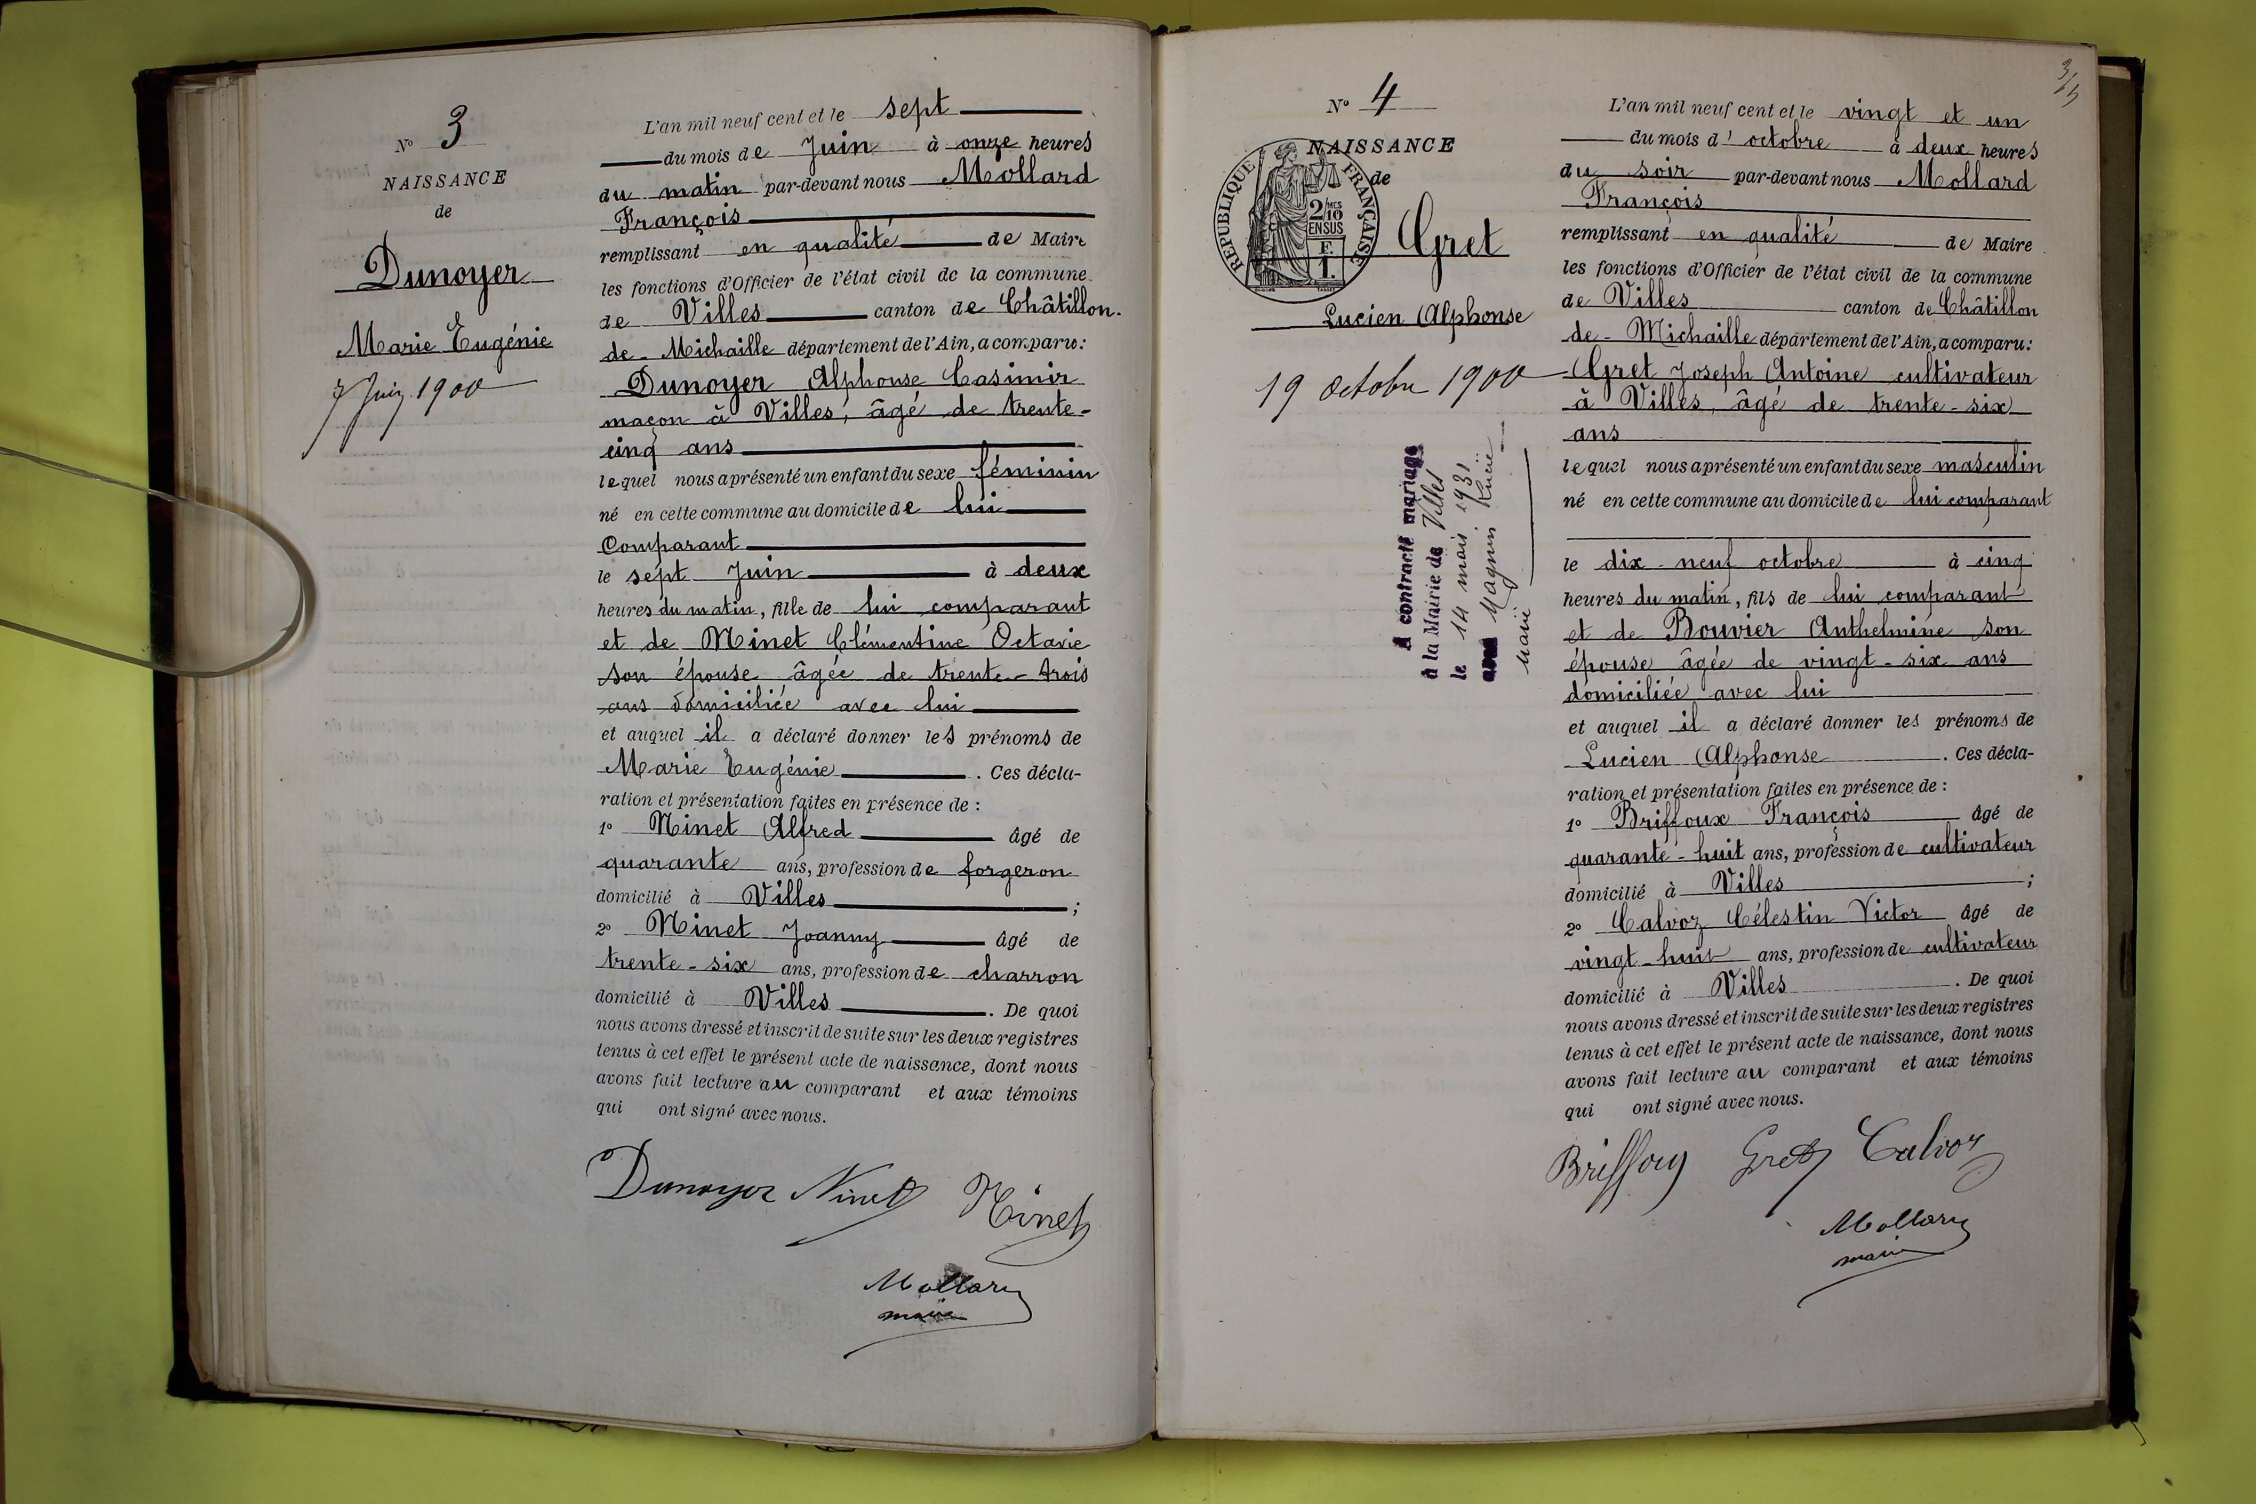 N° 3
NAISSANCE
de
Dunoyer
Marie Eugénie
7 Juin 1900
L'an mil neuf cent et le sept
du mois de Juin à onze heures
du matin par-devant nous Mollard
François
remplissant en qualité de Maire
les fonctions d'Officier de l'état civil de la commune
de Villes canton de Châtillon.
de-Michaille département de l'Ain, a comparu:
Dunoyer Alphonse Casimir
maçon à Villes, âgé de trente-
cinq ans
lequel nous a présenté un enfant du sexe féminin
né en cette commune au domicile de lui
Comparant
le sept Juin à deux
heures du matin, fille de lui comparant
et de Ninet Clémentine Octavie
son épouse âgée de trente-trois
ans domiciliée avec lui
et auquel il a déclaré donner les prénoms de
Marie Eugénie. Ces décla-
ration et présentation faites en présence de :
1° Ninet Alfred âgé de
quarante ans, profession de forgeron
domicilié à Villes ;
2° Ninet Joanny âgé de
trente-six ans, profession de charron
domicilié à Villes. De quoi
nous avons dressé et inscrit de suite sur les deux registres
tenus à cet effet le présent acte de naissance, dont nous
avons fait lecture au comparant et aux témoins
qui ont signé avec nous.
Dunoyer Ninet Ninet
Mollard
maire
3/5
N° 4
NAISSANCE
de
RÉPUBLIQUE FRANÇAISE
2/10 MES
EN SUS
F.
1.
Gret
Lucien Alphonse
19 Octobre 1900
A contracté mariage
à la Mairie de Villes
le 14 mars 1931
avec Magnin
L'an mil neuf cent et le vingt et un
du mois d'octobre à deux heures
du soir par-devant nous Mollard
François
remplissant en qualité de Maire
les fonctions d'Officier de l'état civil de la commune
de Villes canton de Châtillon
de-Michaille département de l'Ain, a comparu:
Gret Joseph Antoine cultivateur
à Villes, âgé de trente-six
ans
lequel nous a présenté un enfant du sexe masculin
né en cette commune au domicile de lui comparant
le dix-neuf octobre à cinq
heures du matin, fils de lui comparant
et de Bouvier Anthelmine son
épouse âgée de vingt-six ans
domiciliée avec lui
et auquel il a déclaré donner les prénoms de
Lucien Alphonse. Ces décla-
ration et présentation faites en présence de :
1° Briffoux François âgé de
quarante-huit ans, profession de cultivateur
domicilié à Villes ;
2° Calvoz Célestin Victor âgé de
vingt-huit ans, profession de cultivateur
domicilié à Villes. De quoi
nous avons dressé et inscrit de suite sur les deux registres
tenus à cet effet le présent acte de naissance, dont nous
avons fait lecture au comparant et aux témoins
qui ont signé avec nous.
Briffoux Gret Calvoz
Mollard
maire